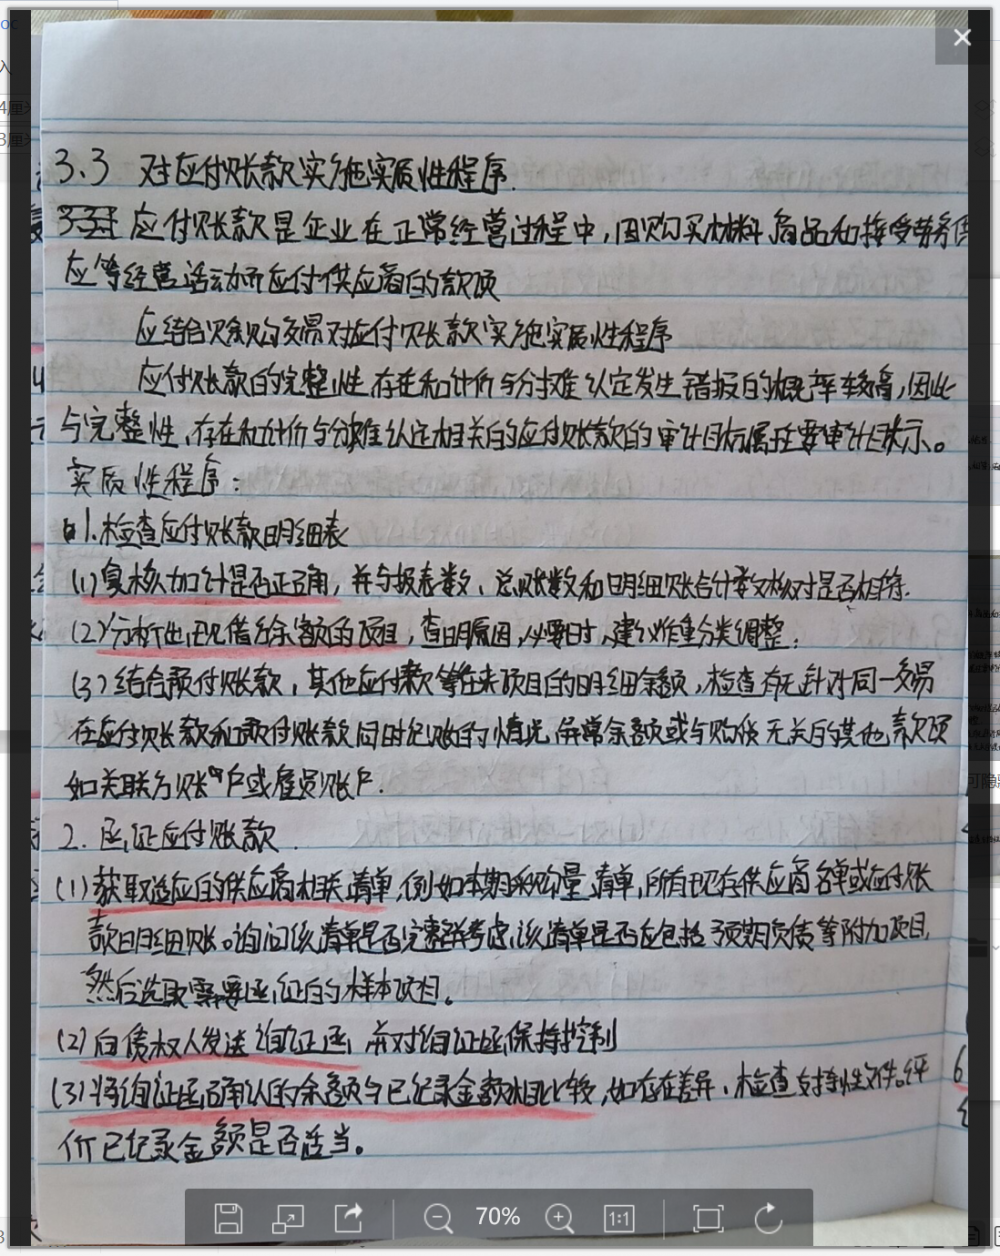 3.3 对应付账款实施实质性程序.
应付账款是企业在正常经营过程中,因购买材料、商品和接受劳务供
应等经营活动而应付供应商的款项
应结合赊购交易对应付账款实施实质性程序
应付账款的完整性、存在和计价与分摊认定发生错报的概率较高,因此
与完整性、存在和计价与分摊认定相关的应付账款的审计目标属主要审计目标。
实质性程序:
1.检查应付账款明细表
(1)复核加计是否正确,并与报表数、总账数和明细账合计数核对是否相符.
(2)分析出现借方余额的项目,查明原因,必要时,建议作重分类调整.
(3)结合预付账款,其他应付款等往来项目的明细余额,检查有无针对同一交易
在应付账款和预付账款同时记账的情况,异常余额或与购货无关的其他款项
如关联方账户或雇员账户.
2.函证应付账款.
(1)获取适应的供应商相关清单,例如本期采购量清单,所有现存供应商名单或应付账
款明细账。询问该清单是否完整并考虑,该清单是否应包括预期负债等附加项目,
然后选取需要函证的样本项目。
(2)向债权人发送询证函,并对询证函保持控制
(3)将询证函确认的余额与已记录金额相比较,如存在差异、检查支持性文件。评
价已记录金额是否适当。
70%
1:1